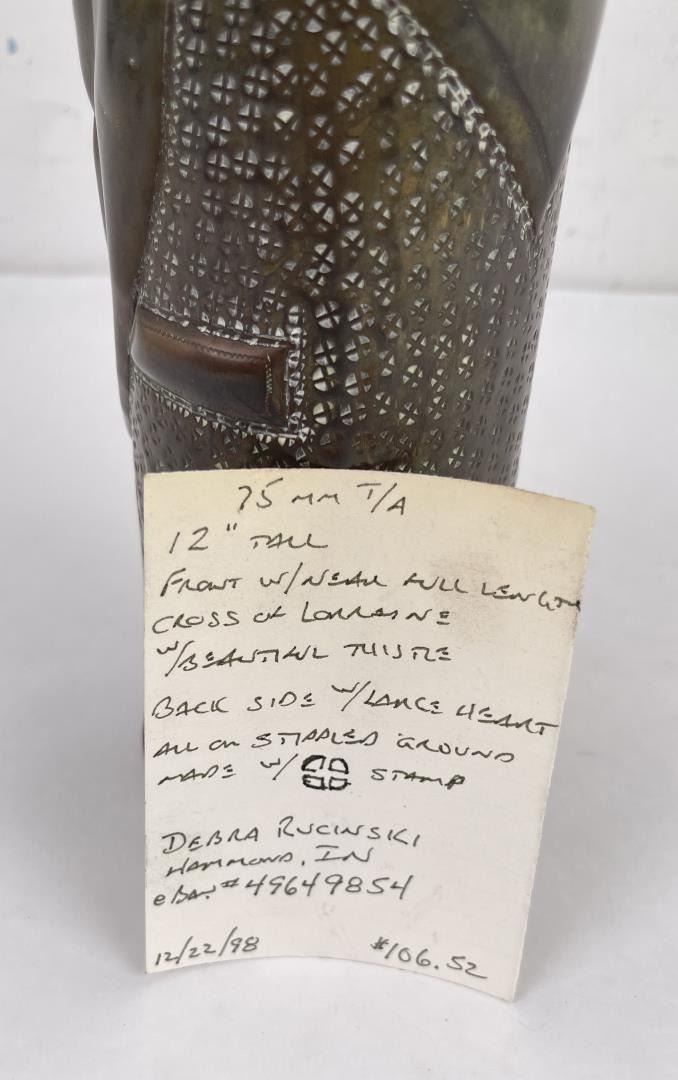 75 MM T/A
12" TALL
FRONT W/NEAR FULL LENGTH
CROSS OF LORRAINE
W/BEAUTIFUL THISTLE
BACK SIDE W/LARGE HEART
ALL ON STIPPLED GROUND
MADE W/ STAMP
DEBRA RUCINSKI
HAMMOND, IN
eBay #49649854
12/22/98 $106.52